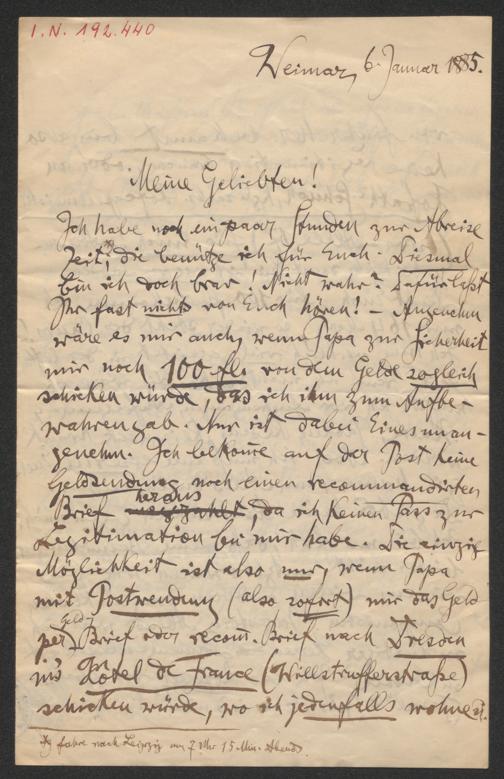 I.N. 192.440
Weimar, 6. Januar 1885.
Meine Geliebten!
Ich habe noch ein paar Stunden zur Abreise
Zeit*, die benütze ich für Euch. Diesmal
bin ich doch brav! Nicht wahr? Dafür lasst
Ihr fast nichts von Euch hören! – Angenehm
wäre es mir auch, wenn Papa zur Sicherheit
mir noch 100 fl. von dem Gelde sogleich
schicken würde, das ich ihm zum Aufbe-
wahren gab. Nur ist dabei Eines unan-
genehm. Ich bekomme auf der Post keine
Geldsendung noch einen recommandirten
Brief heraus, da ich keinen Pass zur
Legitimation bei mir habe. Die einzig
Möglichkeit ist also nur, wenn Papa
mit Postwendung (also sofort) mir das Geld
per Geld Brief oder recom. Brief nach Dresden
ins Hotel de France (Willstrufferstraße)
schicken würde, wo ich jedenfalls wohne.
Ich fahre nach Leipzig um 7 Uhr 15 Min. Abends.